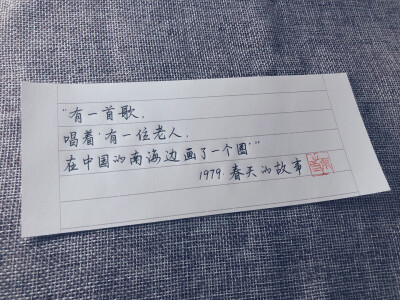 “有一首歌，
唱着‘有一位老人，
在中国的南海边画了一个圈’”
1979·春天的故事